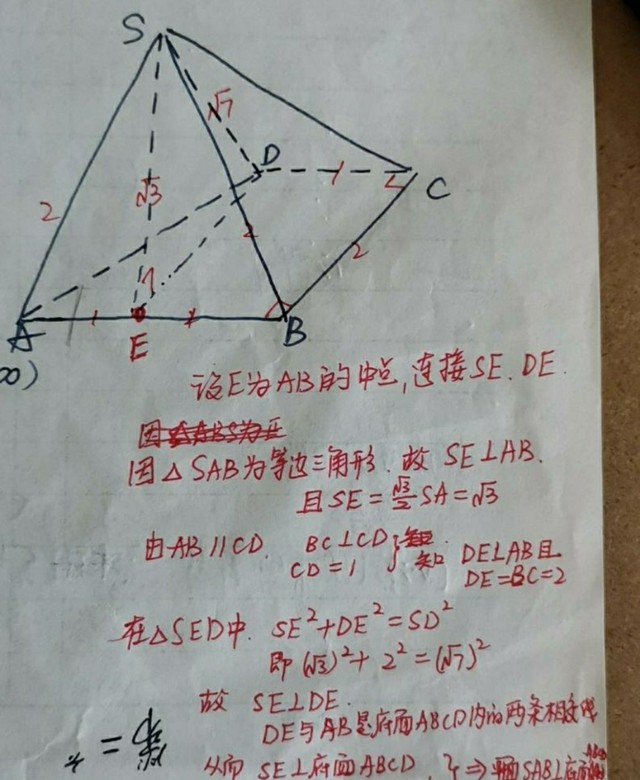 S
√7
D
1
C
2
√3
2
2
1
A
1
E
B
∞)
设E为AB的中点,连接SE.DE.
因△SAB为等边三角形.故 SE⊥AB.
且SE=√3/2 SA=√3
由AB∥CD. BC⊥CD
CD=1 } 知 DE⊥AB且
DE=BC=2
在△SED中. SE²+DE²=SD²
即(√3)²+2²=(√7)²
故 SE⊥DE.
DE与AB是底面ABCD内的两条相交线
从而 SE⊥底面ABCD
SAB⊥底面